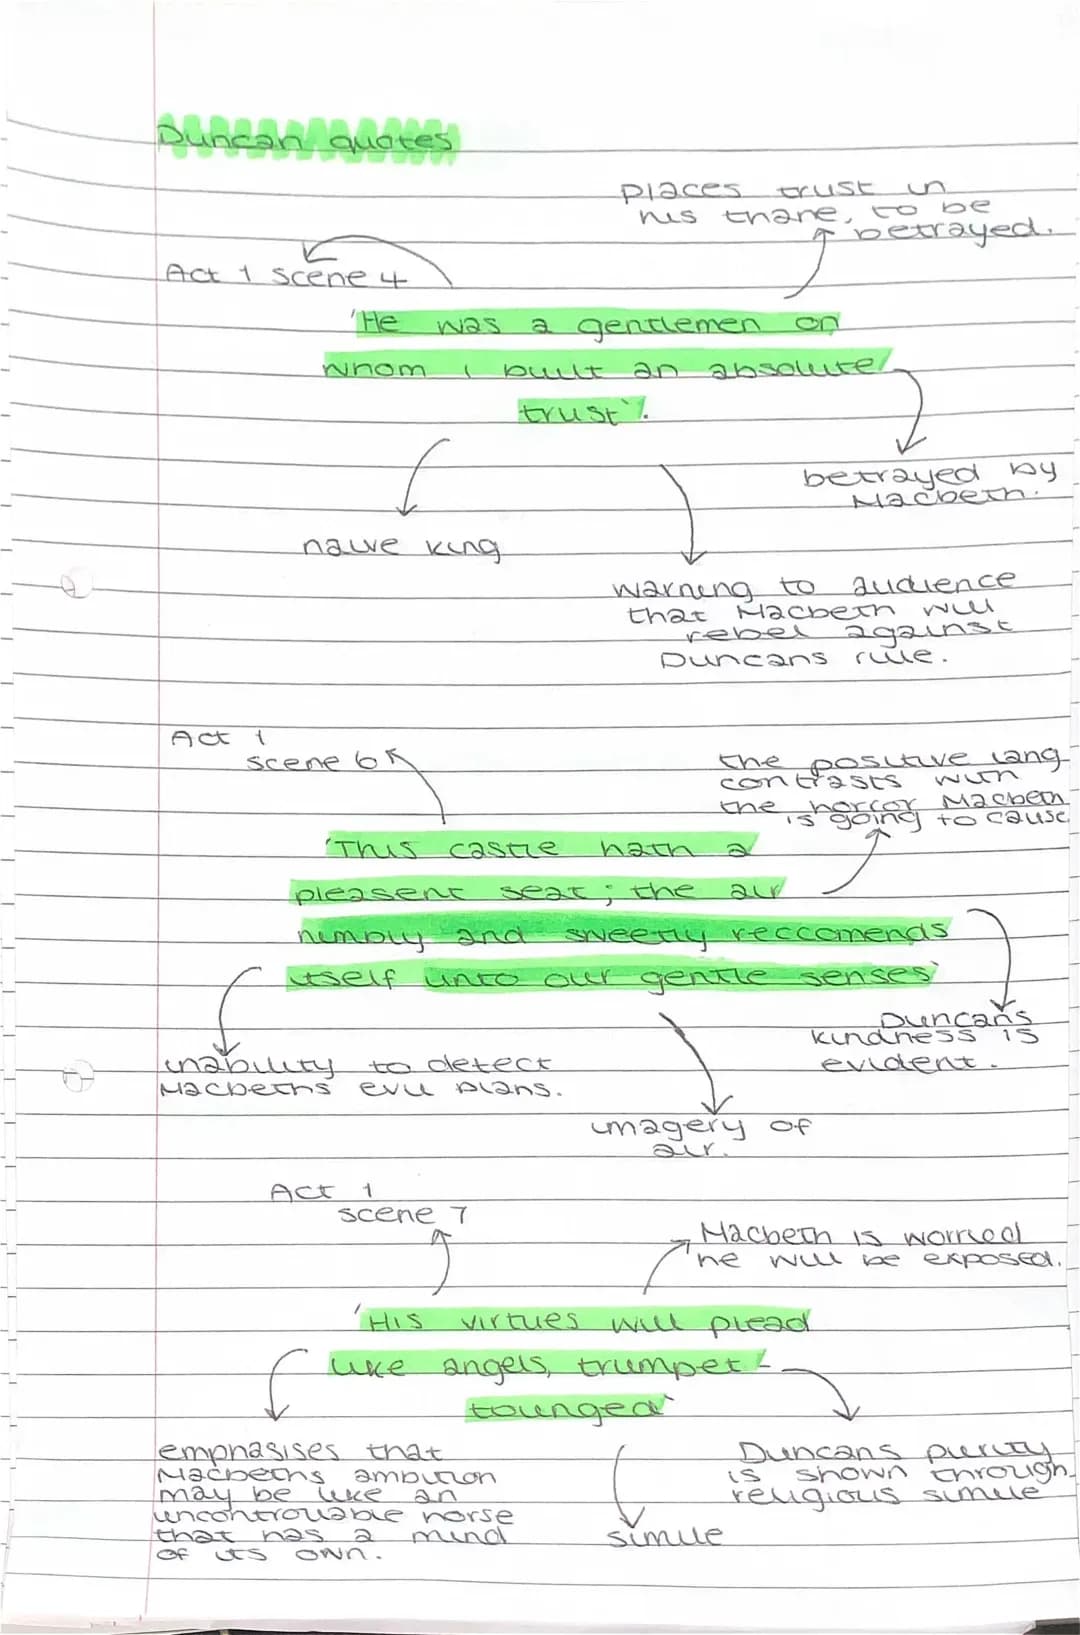 Duncan quotes
places trust in
his thane, to be
betrayed.
Act 1 Scene 4
'He was a gentlemen on
whom I built an absolute
trust'.
betrayed by
Macbeth.
naive king
warning to audience
that Macbeth will
rebel against
Duncans rule.
Act 1
scene 6
the positive lang
contrasts with
the horror Macbeth
is going to cause
'This castle hath a
pleasent seat; the air
nimbly and sweetly reccomends
itself unto our gentle senses'
Duncans
kindness is
evident.
inability to detect
Macbeths evil plans.
imagery of
air.
Act 1
scene 7
Macbeth is worried
he will be exposed.
'His virtues will plead
like angels, trumpet-
tounged'
emphasises that
Macbeths ambition
may be like an
uncontrollable horse
that has a mind
of its own.
Duncans purity
is shown through
religious simile
simile